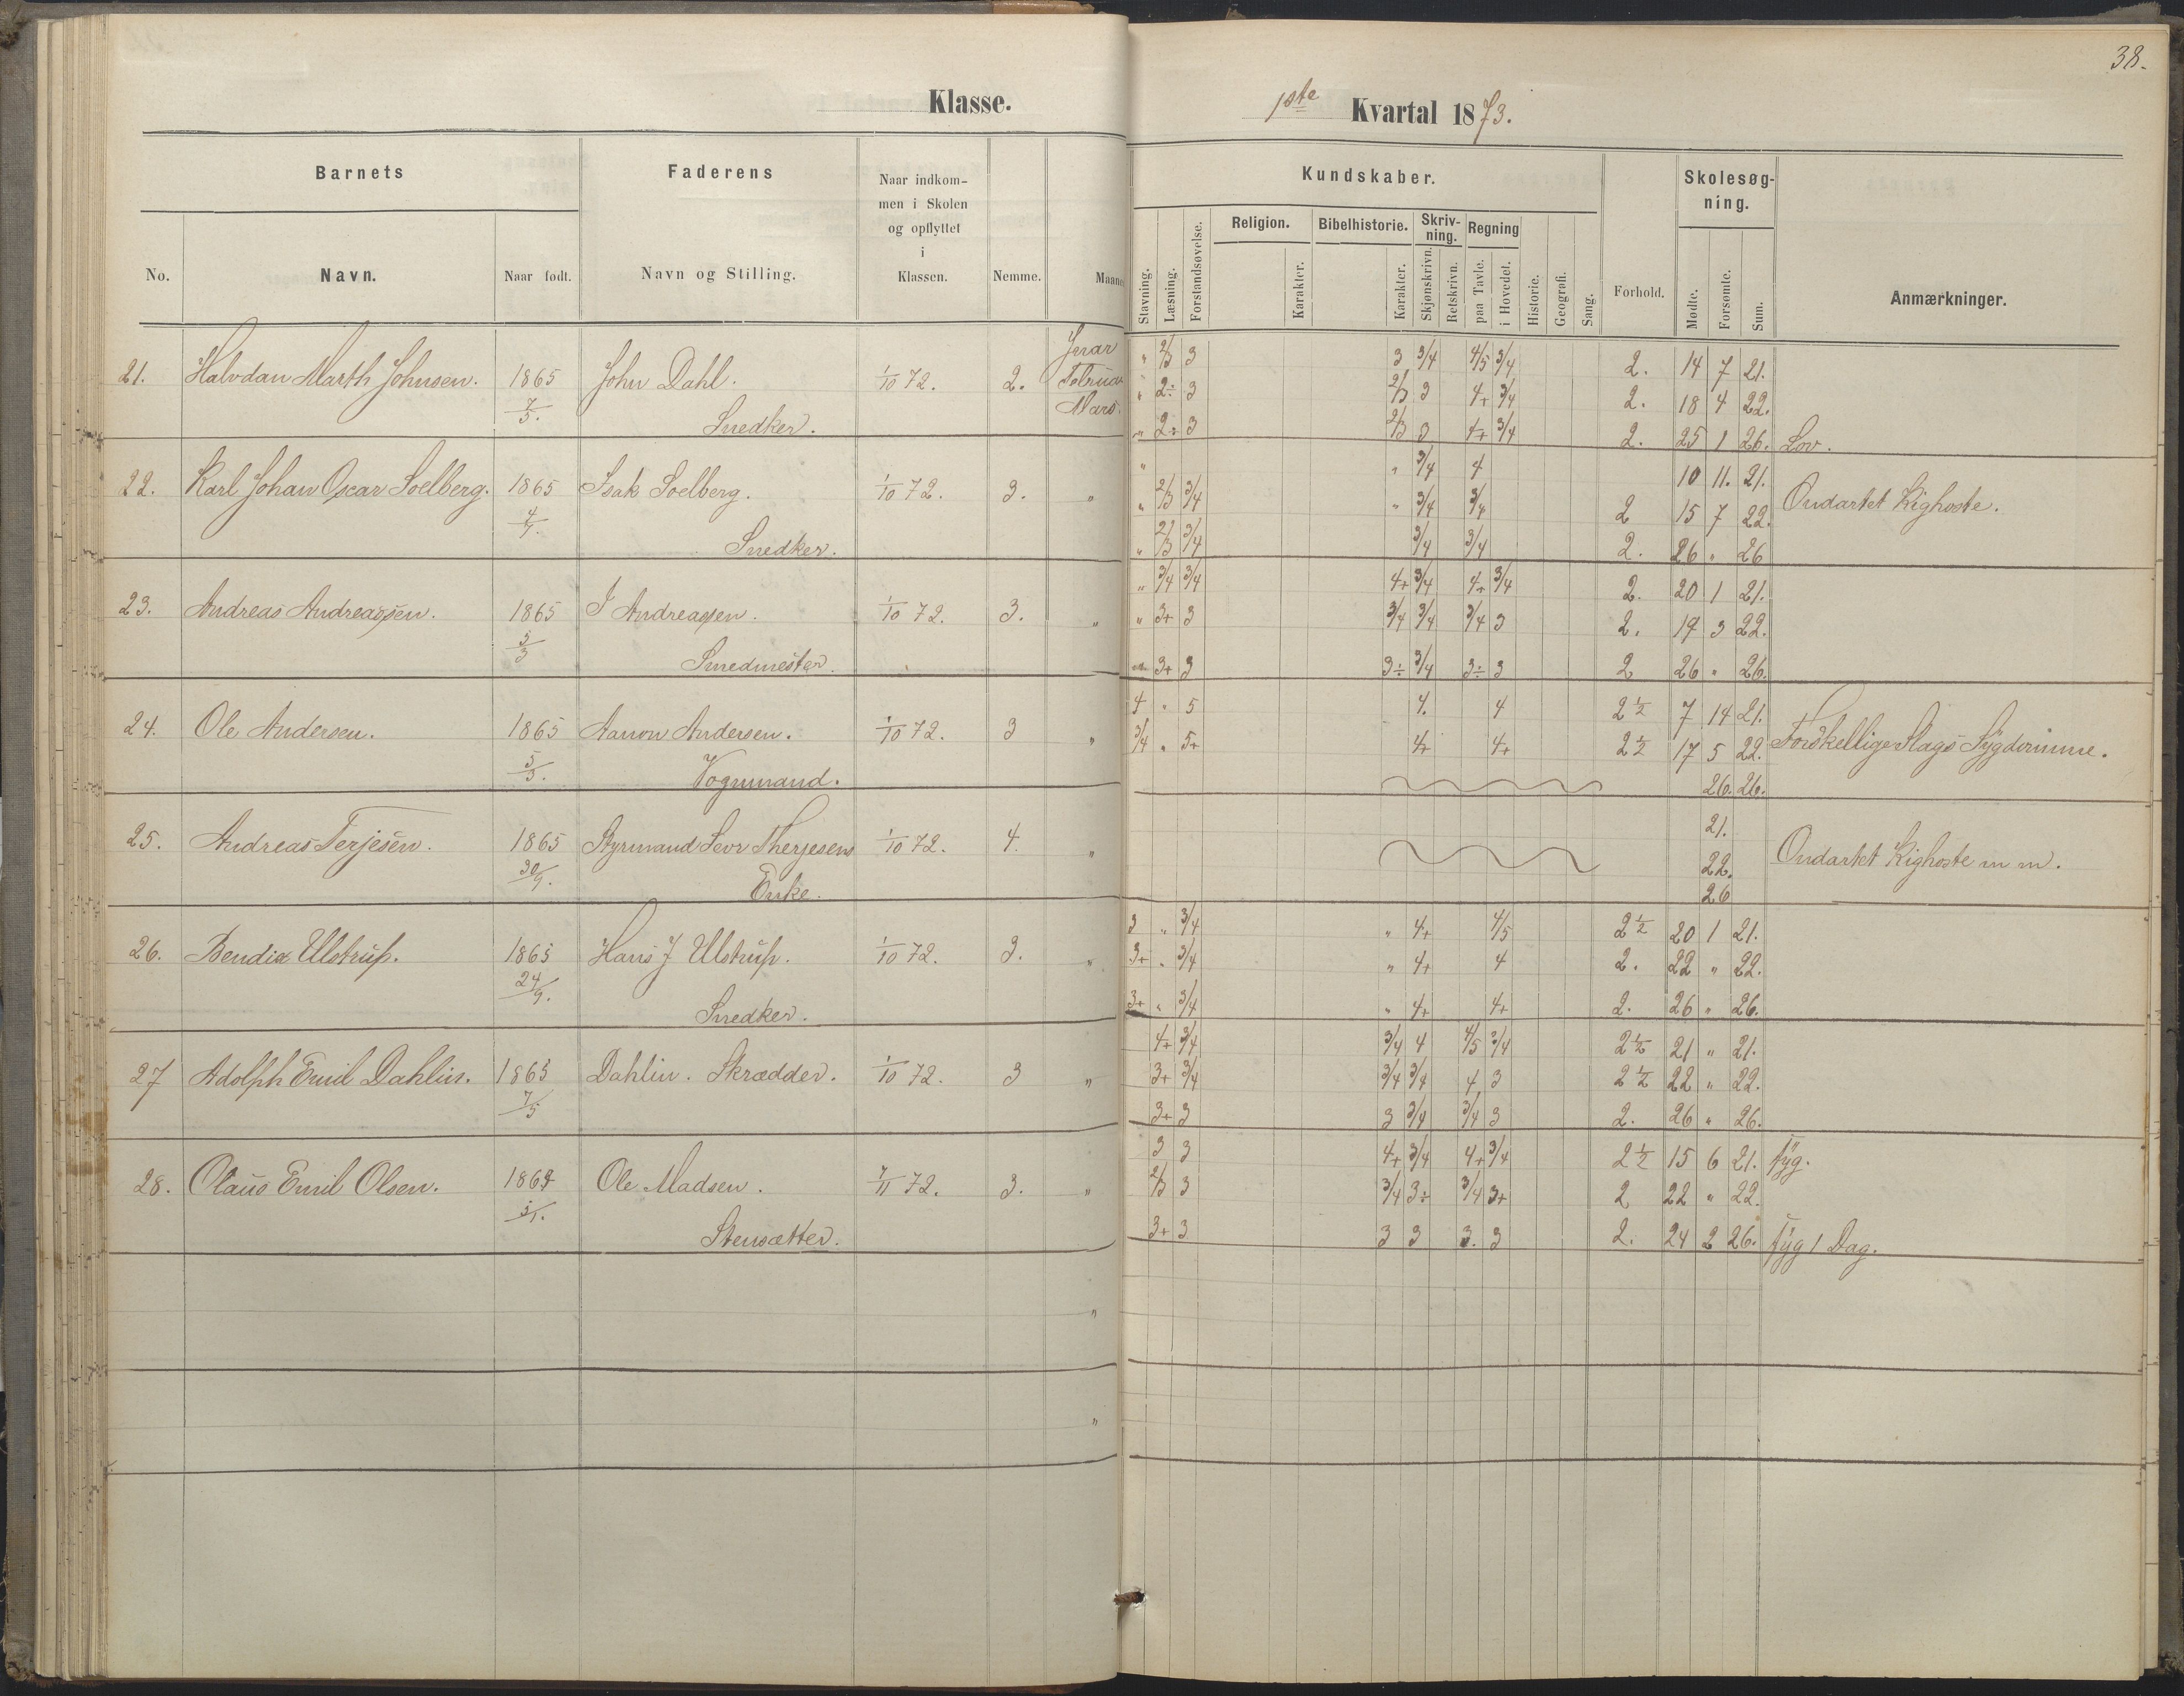 38.
Klasse.
1ste Kvartal 1873.
Barnets
Faderens
Naar indkom-
men i Skolen
og opflyttet
i
Klassen.
No.
Navn.
Naar født.
Navn og Stilling.
Nemme.
Maaned
Kundskaber.
Skolesøg-
ning.
Religion.
Bibelhistorie.
Skriv-
ning.
Regning
Stavning.
Læsning.
Forstandsøvelse.
Karakter.
Karakter.
Skjønskrivn.
Retskrivn.
paa Tavle.
i Hovedet.
Historie.
Geografi.
Sang.
Forhold.
Mødte.
Forsømte.
Sum.
Anmærkninger.
21. Halvdan Marth Johnsen. 1865 7/5. John Dahl. Snedker. 1/10 72. 2.
Januar " 2/3 3 3 3/4 4/5 3/4 2. 14 7 21.
Februar " 2÷ 3 2/3 3 4+ 3/4 2. 18 4 22.
Mars. " 2÷ 3 2/3 3 4+ 3/4 2. 25 1 26. Lov.
22. Karl Johan Oscar Soelberg. 1865 4/7. Isak Soelberg. Snedker. 1/10 72. 3. "
" " 3/4 4 10 11. 21.
" 2/3 3/4 " 3/4 3/4 2 15 7 22. Ondartet Kighoste.
" 2/3 3/4 3/4 3/4 2. 26 " 26
23. Andreas Andreassen. 1865 5/3 I Andreassen. Smedmester. 1/10 72. 3. "
" 3/4 3/4 4+ 3/4 4+ 3/4 2. 20 1 21.
" 3+ 3 3/4 3/4 3/4 3 2. 19 3 22.
" 3+ 3 3÷ 3/4 3÷ 3 2 26 " 26.
24. Ole Andersen. 1865 5/3. Aanon Andersen. Vognmand. 1/10 72. 3 "
4 " 5 4. 4 2 1/2 7 14 21.
3/4 " 5+ 4+ 4+ 2 1/2 17 5 22. Forskellige Slags Sygdomme.
26. 26.
25. Andreas Terjesen. 1865 30/9. Styrmand Therjesens Enke. 1/10 72. 4. "
21.
22. Ondartet Kighoste m m.
26
26. Bendix Ulstrup. 1865 24/9. Hans J Ulstrup. Snedker. 1/10 72. 3. "
3 " 3/4 " 4+ 4/5 2 1/2 20 1 21.
3+ " 3/4 " 4+ 4 2. 22 " 22.
3+ " 3/4 " 4+ 4+ 2. 26 " 26.
27 Adolph Emil Dahlin. 1865 7/5 Dahlin. Skrædder. 1/10 72. 3 "
4+ 3/4 3/4 4 4/5 3/4 2 1/2 21 " 21.
3+ 3/4 3/4 3/4 4 3 2 1/2 22 " 22.
3+ 3 3 3/4 3/4 3 2. 26 " 26.
28. Olaus Emil Olsen. 1864 Ole Madsen. Stensætter. 7/11 72. 3. "
3 3 4+ 3/4 4+ 3/4 2 1/2 15 6 21. syg.
2/3 3 3/4 3÷ 3/4 3+ 2 22 " 22.
3+ 3 3 3 3. 3 2. 24 2 26. syg 1 Dag.
"
"